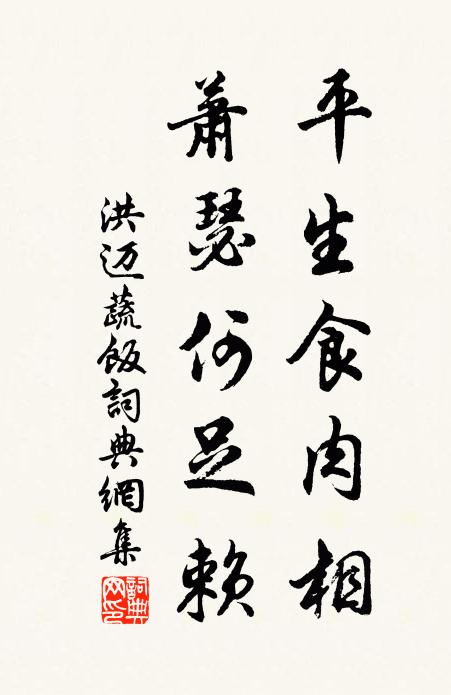 平生食肉相
萧瑟何足賴
洪迈蔬飯詞典網集
詞典網印